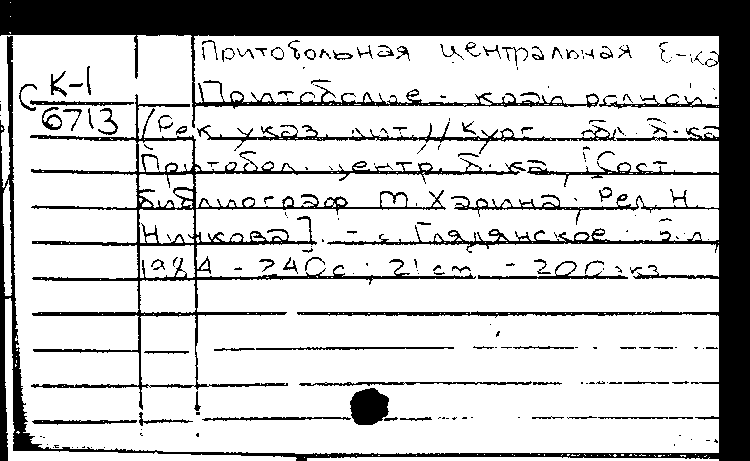 Притобольная центральная б-ка
К-1
Притоболье - край родной:
6713
(Рек. указ. лит.) / Кург. обл. б-ка
Притобол. центр. б-ка, [Сост.
библиограф М. Харина; Ред. Н.
Ничкова]. - с. Глядянское: Б.и,
1984 - 240с.; 21 см - 200экз